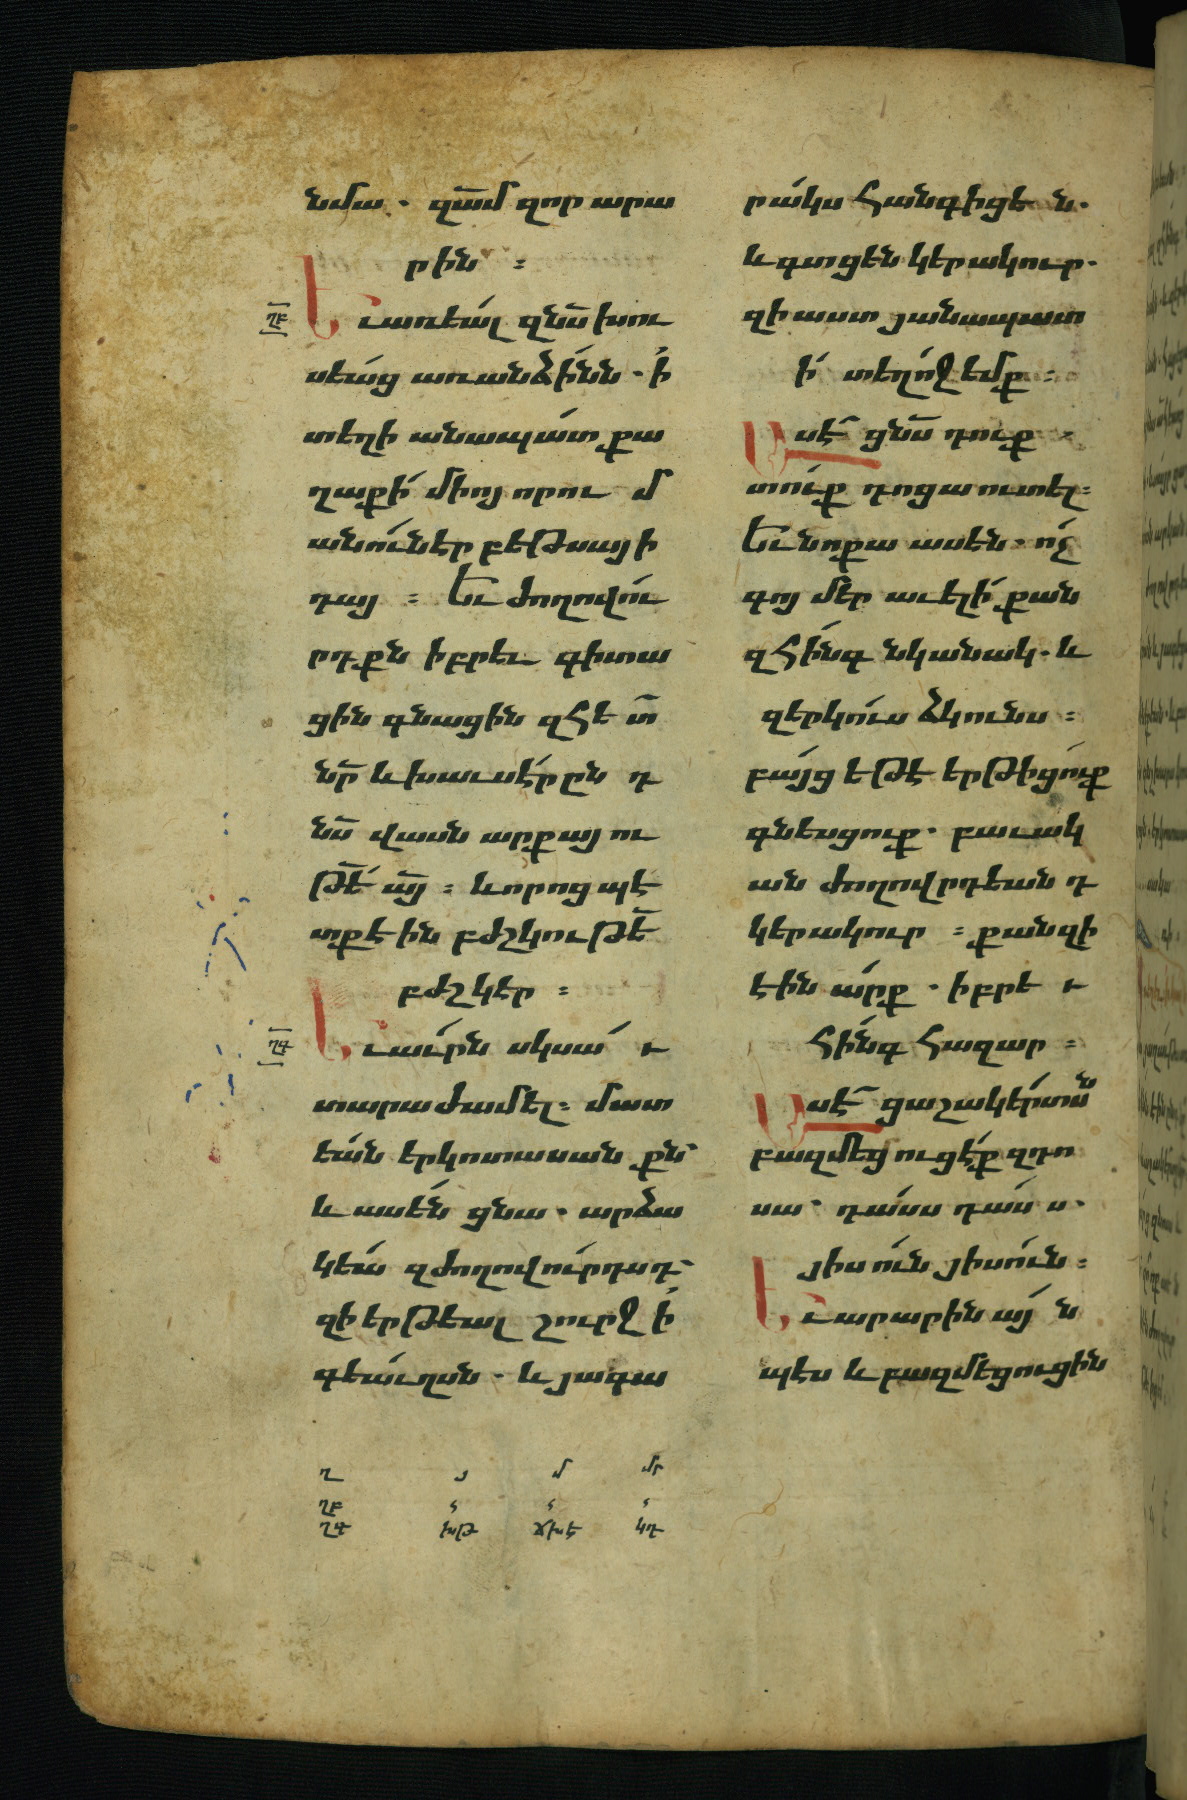 նմա . զա՟մ զոր արա
րին :
ՂԲ Եւ առեալ զնս՟ խու
սեաց առանձինն . ի
տեղի անապատ քա
ղաքի միոյ որում
անուն էր բեթսայի
դայ : Եւ ժողովու
րդքն իբրեւ գիտա
ցին գնացին զհետ՟
նր՟ և խաւսէր ընդ
նս՟ վասն արքայու
թե՟ ա՟յ : և որոց պէ
տք էին բժշկութե՟
բժշկէր :
ՂԳ Եւ աւրն սկսաւ
տարաժամել : մատ
եան երկոտասանքն
և ասեն ցնա . արձա
կեա զժողովուրդսդ
զի երթեալ շուրջ ի
գեաւղսն . և յագա
րակս հանգիցեն .
և գտցեն կերակուր .
զի աստ յանապատ
ի տեղոջ եմք :
Ասէ ցնս՟ դուք
տուք դոցա ուտել :
Եւ նոքա ասեն . ոչ
գոյ մեր աւելի քան
զհինգ նկանակ . և
զերկուս ձկունս :
բայց եթէ երթիցուք
գնեսցուք . բաւակ
ան ժողովրդեանդ
կերակուր : քանզի
էին արք . իբրեւ
հինգ հազար :
Ասէ ցաշակերտսն
բազմեցուցէք զդո
սա . դասս դասս .
յիսուն յիսուն :
Եւ արարին այն
պէս և բազմեցուցին
Ղ Յ Մ ՄԻ
ՂԲ
ՂԳ ԽԹ ՃԽԷ ԿԴ